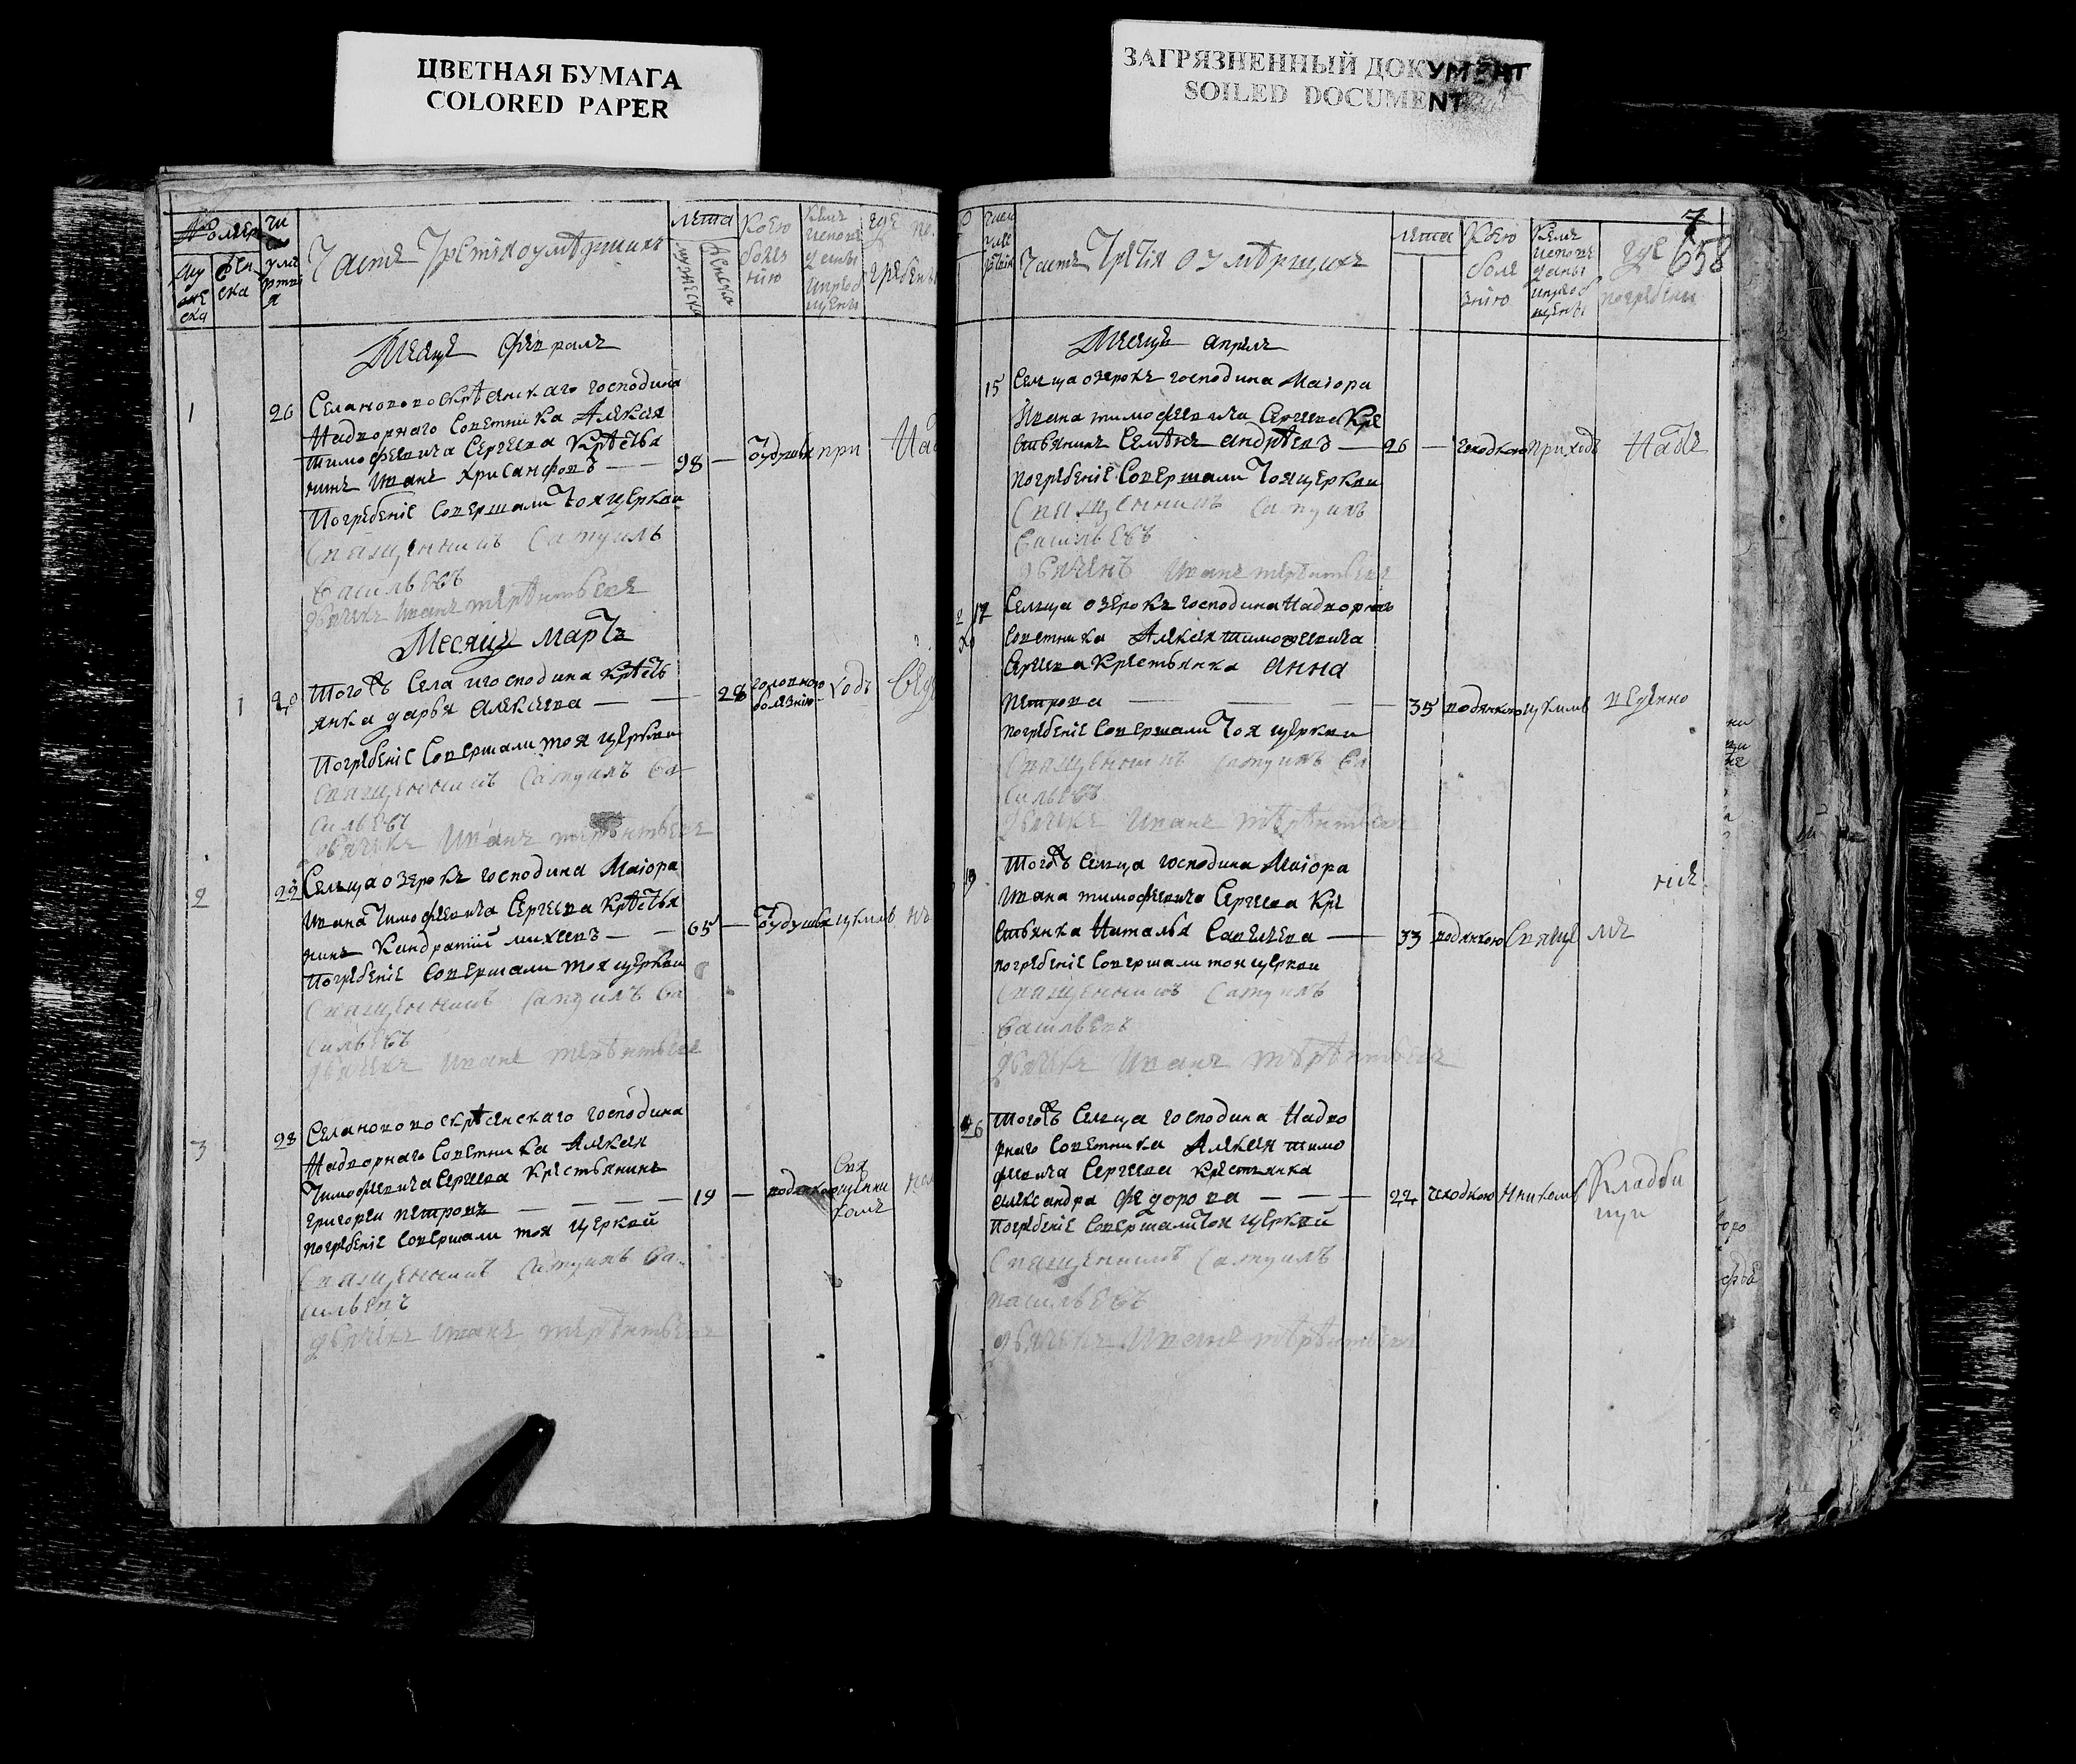 ЦВЕТНАЯ БУМАГА
COLORED PAPER
ЗАГРЯЗНЕННЫЙ ДОКУМЕНТ
SOILED DOCUMENT
Часть Третія оумѣршихъ
лѣта
Коею болезнію
Месяцъ февраль
1 26 Села новопокрѣвскаго господина
Надворнаго Советника Алексея
тимофеевича Сергеева Крѣстья
нинъ Иванъ Хрисанфовъ — 98 —
Погрѣбеніе совершали тоя церкви
Священникъ Самуилъ
Васильевъ
дьячекъ Иванъ терѣнтьевъ
Месяцъ мартъ
1 тогожъ села игосподина крѣсть
янка дарья алексеева — 28 головною болезнію
Погрѣбеніе совершали тоя церкви
Священникъ Самуилъ Ва
сильевъ
дьячекъ Иванъ терѣнтьевъ
2 22 Сельца озерокъ господина Маіора
Ивана тимофеевича Сергеева крѣстья
нинъ Кандратій михеевъ — 65 —
Погрѣбеніе совершали тоя церкви
Священникъ Самуилъ Ва
сильевъ
дьячекъ Иванъ терѣнтьевъ
3 28 Села новопокрѣвскаго господина
Надворнаго Советника Алексея
тимофеевича Сергеева крестьянинъ
григореи петровъ — 19 — водянкою
погрѣбеніе совершали тоя церкви
Священникъ Самуилъ Ва
сильевъ
дьячекъ Иванъ терѣнтьевъ
7
658
Часть Третія оумѣршихъ
лета
Коею болезнію
где погребены
Месяцъ апрель
15 Сельца озерокъ господина Маіора
Ивана тимофеевича Сергеева кре
стьянинъ Семѣнъ андрѣевъ — 26 — чехоткою приходъ На
погрѣбеніе совершали тоя церкви
Священникъ Самуилъ
Васильевъ
дьячекъ Иванъ терѣнтьевъ
2 17 Сельца озерокъ господина Надворнаго
советника Алексея тимофеевича
Сергеева крестьянка анна
петрова — 35 водянкою
погрѣбеніе совершали тоя церкви
Священникъ Самуилъ Ва
сильевъ
дьячекъ Иванъ терѣнтьевъ
тогожъ сельца господина Маіора
Ивана тимофеевича Сергеева кре
стьянка Наталья Савельева — 33 водянкою Свяще
погрѣбеніе совершали тоя церкви
Священникъ Самуилъ
Васильевъ
дьячекъ Иванъ терѣнтьевъ
тогожъ сельца господина Надво
рнаго советника Алексея тимо
феевича Сергеева крестьянка
александра федорова — 22 чехоткою нникомъ Кладби
щи
погрѣбеніе совершали тоя церкви
Священникъ Самуилъ
васильевъ
дьячекъ Иванъ терѣнтьевъ